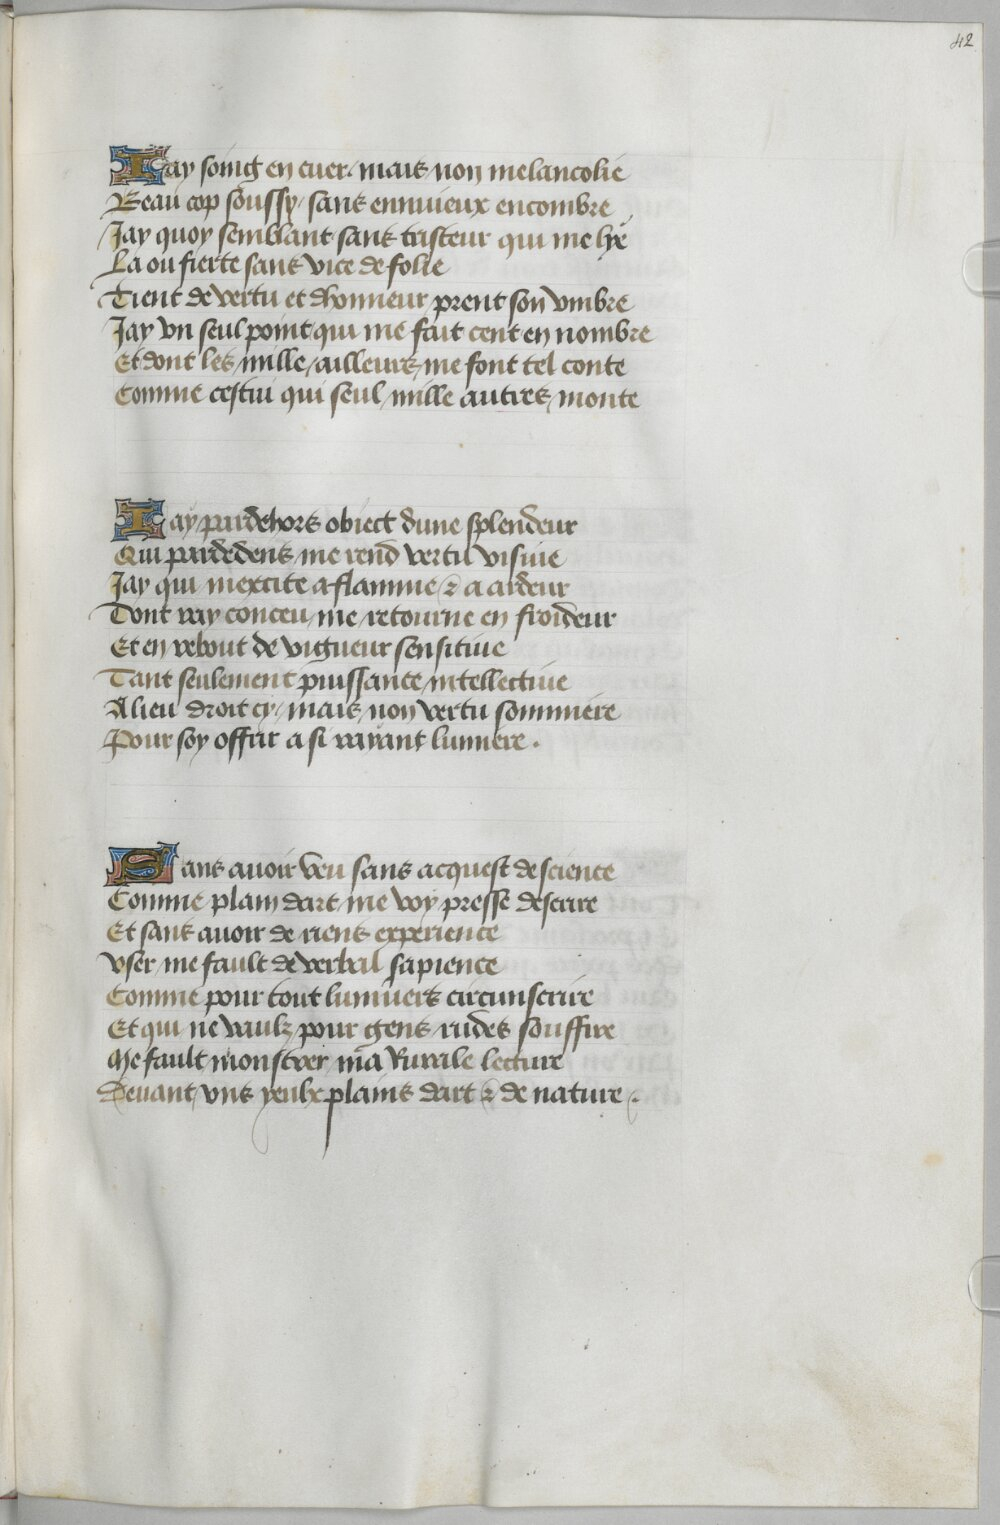 42
Jay soing en cuer / mais non melancolie
Beau cop soussy / sans ennuieux encombre
Jay quoy semblant sans tristeur qui me lye
La ou fierte sans vice de folie
Tient de vertu et dhonneur prent son vmbre
Jay vn seul point qui me fait cent en nombre
Et dont les mille / ailleurs me font tel conte
Comme cestui qui seul mille autres monte
Jay par dehors obiect dune splendeur
Qui par dedens me rend vertu visiue
Jay qui mexcite a flamme & a ardeur
Dont ray conceu me retourne en froideur
Et en rebout de vigueur sensitiue
Tant seulement puissance intellectiue
A lieu droit cy / mais non vertu sommiere
Pour soy offrir a si rayant lumiere .
Sans auoir veu sans acquest de science
Comme plain dart me voy presse descrire
Et sans auoir de riens experience
Vser me fault de verbal sapience
Comme pour tout lunivers circunscrire
Et qui ne vaulz pour gens rudes souffire
Me fault monstrer ma Rurale lecture
Deuant vns yeulx plains dart & de nature .